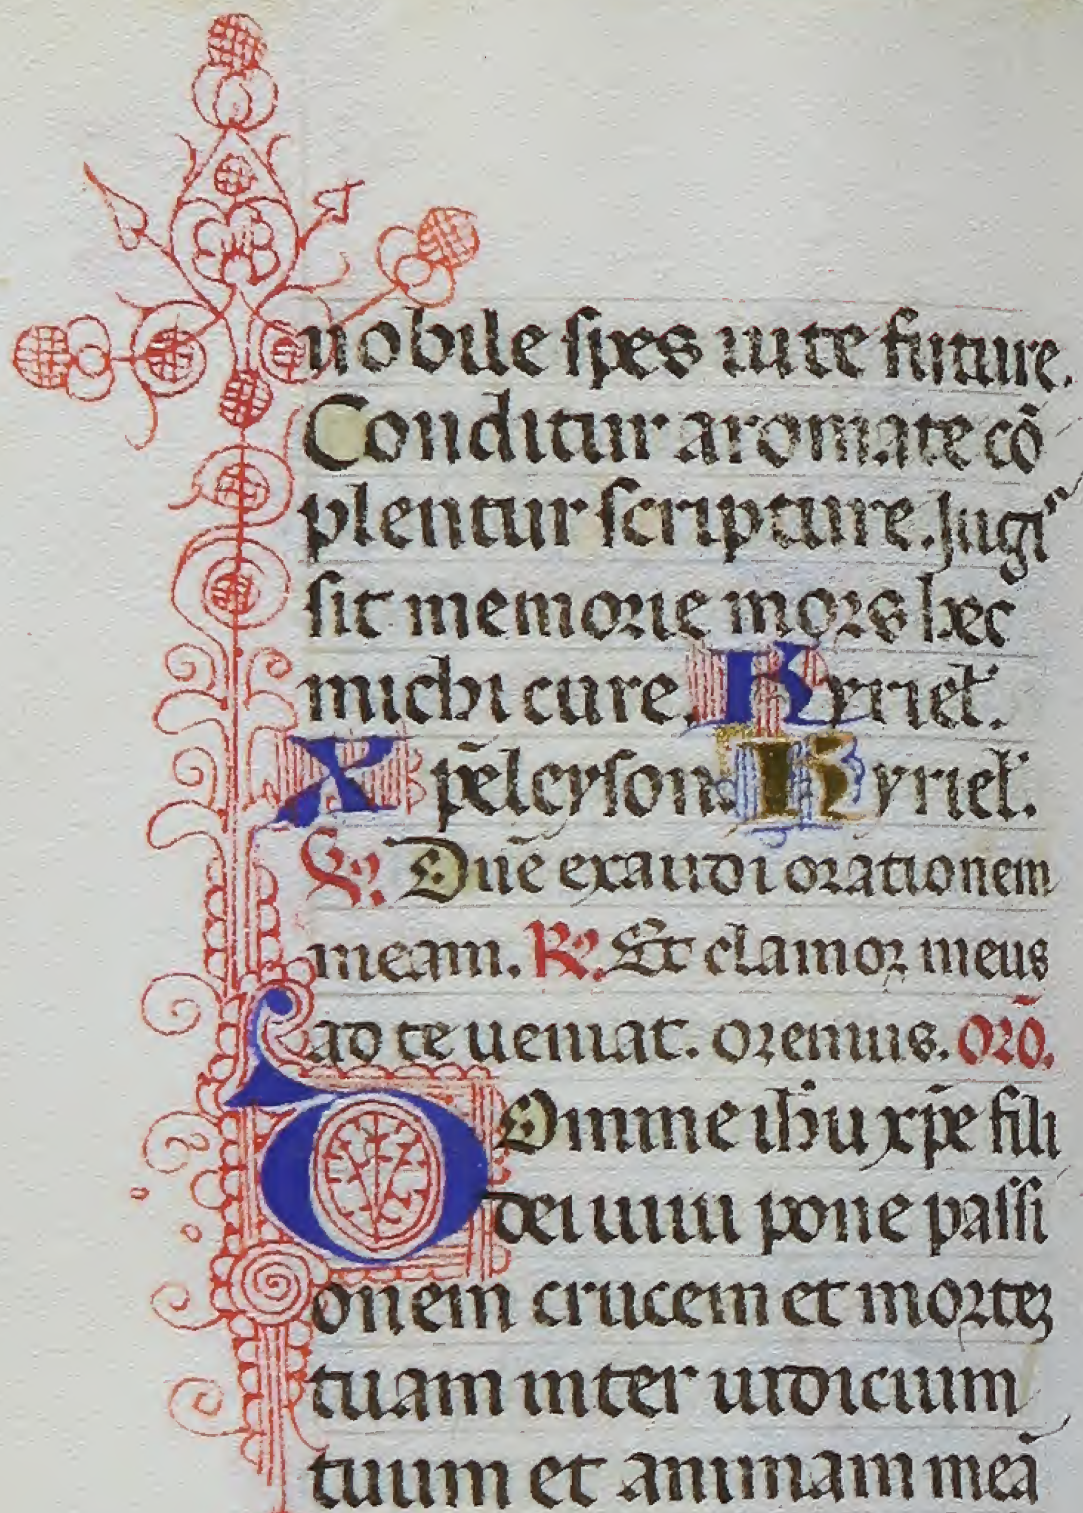 nobile spes uite future.
Conditur aromate cō
plentur scripture. Jugis
sit memorie mors hec
michi cure. Kyriel'.
Xp̄eleyson. Kyriel'.
V̊. Dn̄e exaudi orationem
meam. R̊. Et clamor meus
ad te ueniat. oremus. orō.
DOmine ihū xp̄e fili
dei uiui pone passi
onem crucem et mortez
tuam inter iudicium
tuum et animam meā